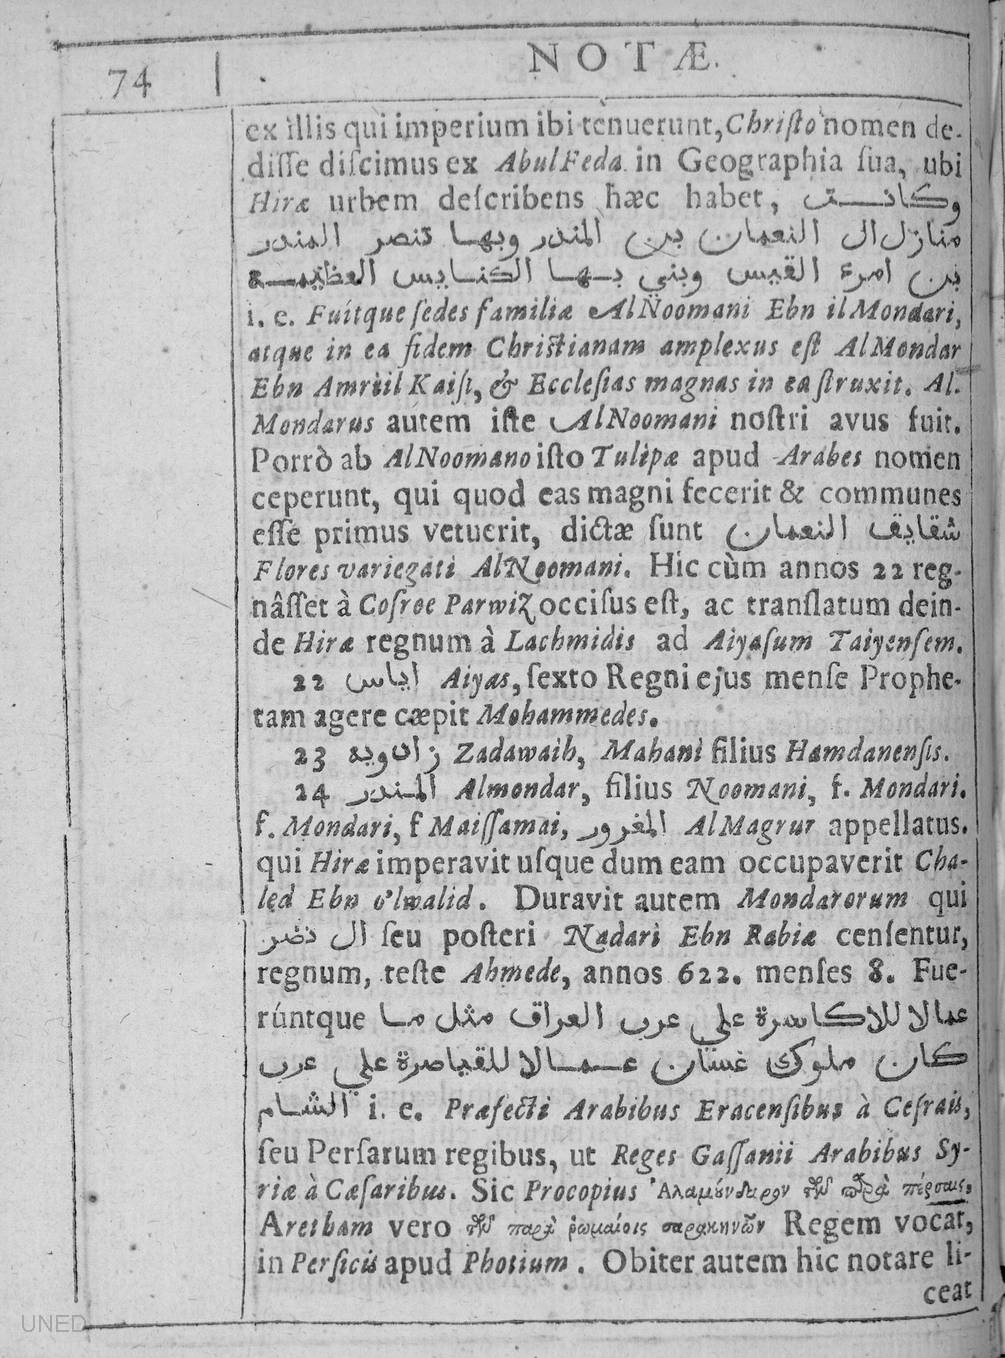 74
NOTÆ.
ex illis qui imperium ibi tenuerunt, Chriſto nomen de-
diſſe diſcimus ex AbulFeda in Geographia ſua, ubi
Hiræ urbem deſcribens hæc habet, وكانت
منازل ال النعمان بن المندر وبها تنصر المندر
بن امرء القيس وبني بها الكنايس العظيمة
i. e. Fuitque ſedes familiæ AlNoomani Ebn ilMondari,
atque in ea fidem Chriſtianam amplexus eſt AlMondar
Ebn Amriil Kaiſi, & Eccleſias magnas in ea ſtruxit. Al-
Mondarus autem iſte AlNoomani noſtri avus fuit.
Porrò ab AlNoomano iſto Tulipæ apud Arabes nomen
ceperunt, qui quod eas magni fecerit & communes
eſſe primus vetuerit, dictæ ſunt شقايق النعمان
Flores variegati AlNoomani. Hic cùm annos 22 reg-
nâſſet à Coſroe Parwiz occiſus eſt, ac tranſlatum dein-
de Hiræ regnum à Lachmidis ad Aiyaſum Taiyenſem.
22 اياس Aiyas, ſexto Regni ejus menſe Prophe-
tam agere cæpit Mohammedes.
23 زادويه Zadawaih, Mahani filius Hamdanenſis.
24 المندر Almondar, filius Noomani, f. Mondari.
f. Mondari, f Maiſſamai, المغرور AlMagrur appellatus.
qui Hiræ imperavit uſque dum eam occupaverit Cha-
led Ebn o'lwalid. Duravit autem Mondarorum qui
ال نضر ſeu poſteri Nadari Ebn Rabiæ cenſentur,
regnum, teſte Ahmede, annos 622. menſes 8. Fue-
rúntque عمالا للاكاسرة علي عرب العراق مثل ما
كان ملوك غسان عمالا للقياصرة علي عرب
الشام i. e. Præfecti Arabibus Eracenſibus à Ceſrais,
ſeu Perſarum regibus, ut Reges Gaſſanii Arabibus Sy-
riæ à Cæſaribus. Sic Procopius Ἀλαμούνδαρον τῶν παρὰ πέρσαις,
Aretham vero τῶν παρὰ ῥωμαίοις σαρακηνῶν Regem vocat,
in Perſicis apud Photium. Obiter autem hic notare li-
ceat
UNED